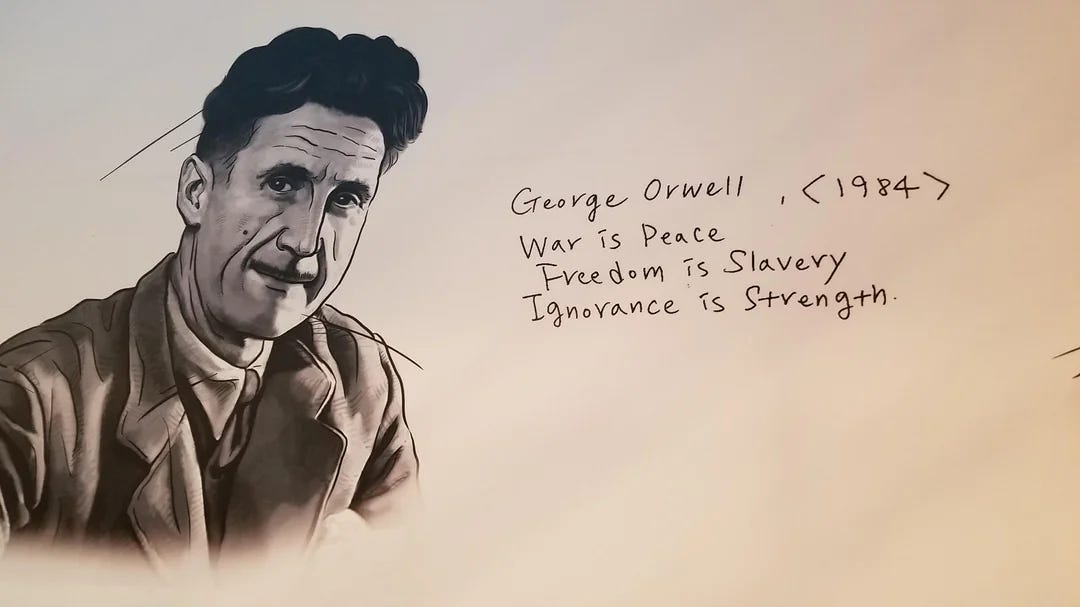 George Orwell , <1984>
War is Peace
Freedom is Slavery
Ignorance is Strength.